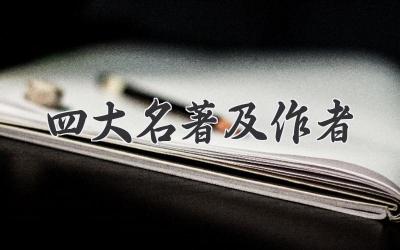 四大名著及作者